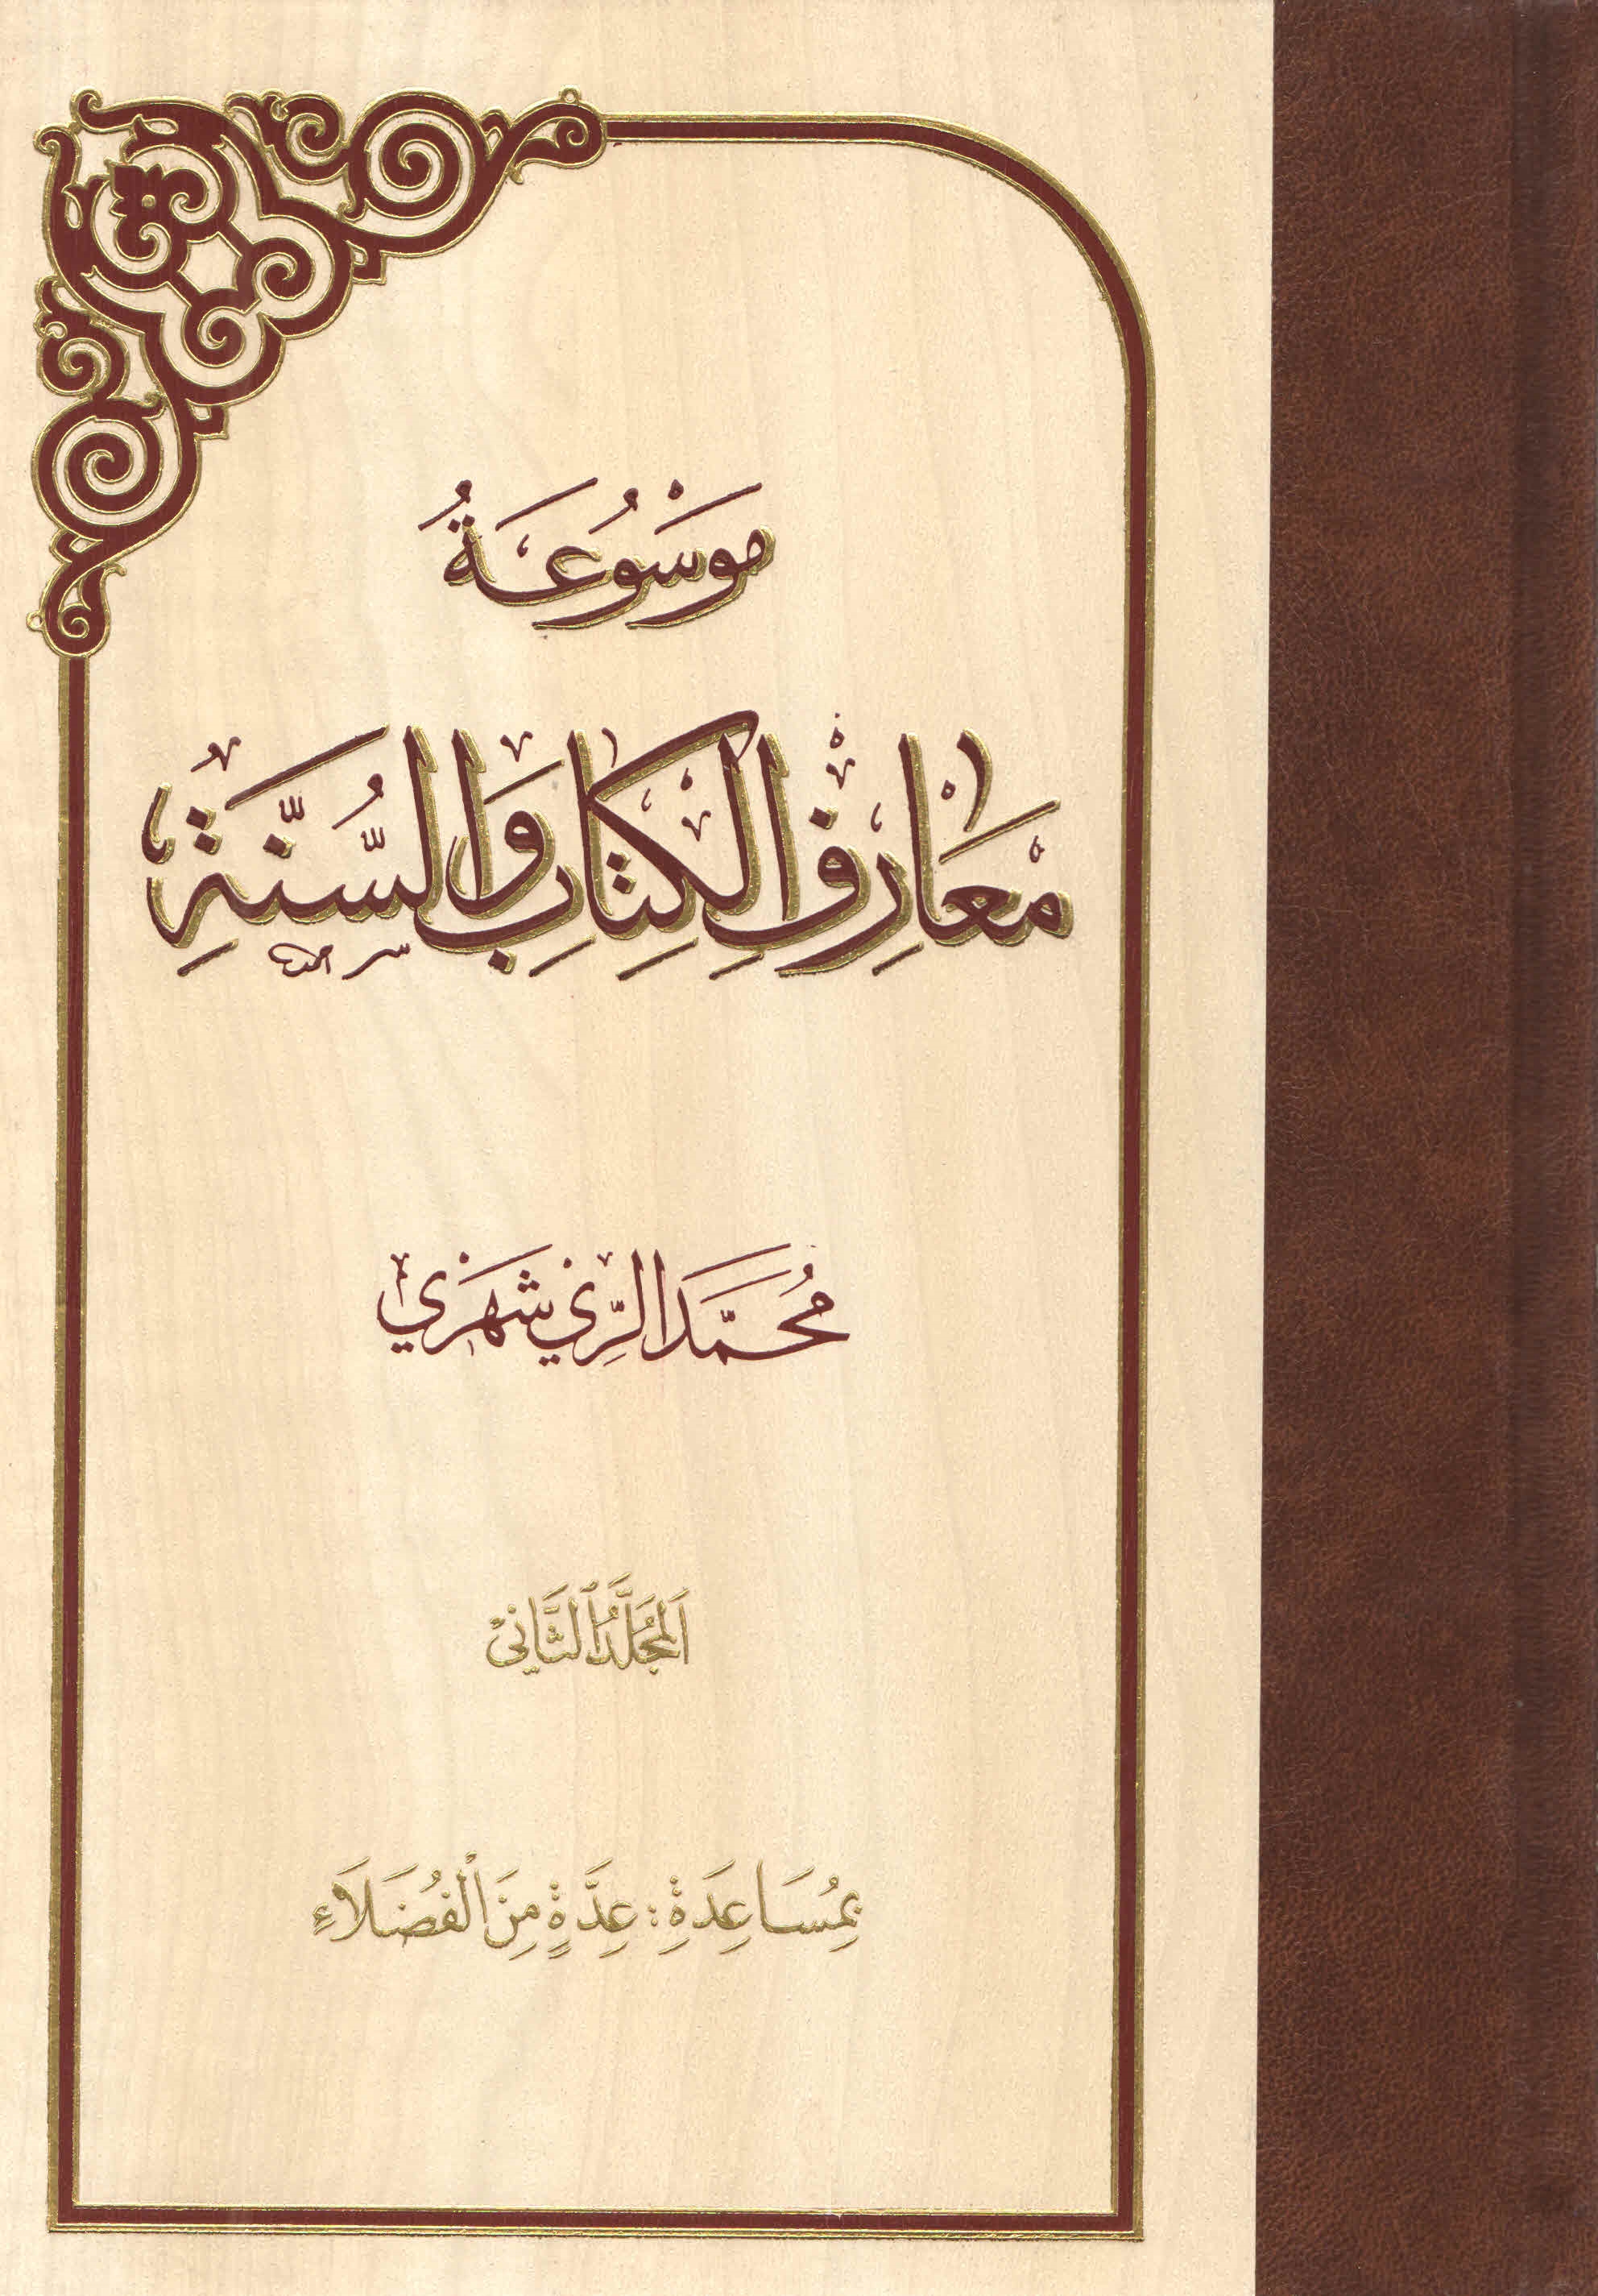 مَوْسُوعَةُ
مَعَارِفِ الْكِتَابِ وَالسُّنَّةِ
مُحَمَّد الرَّي شَهْرِي
اَلْمُجَلَّدُ الثَّانِي
بِمُسَاعِدَةِ : عِدَّةٍ مِنَ الْفُضَلَاءِ